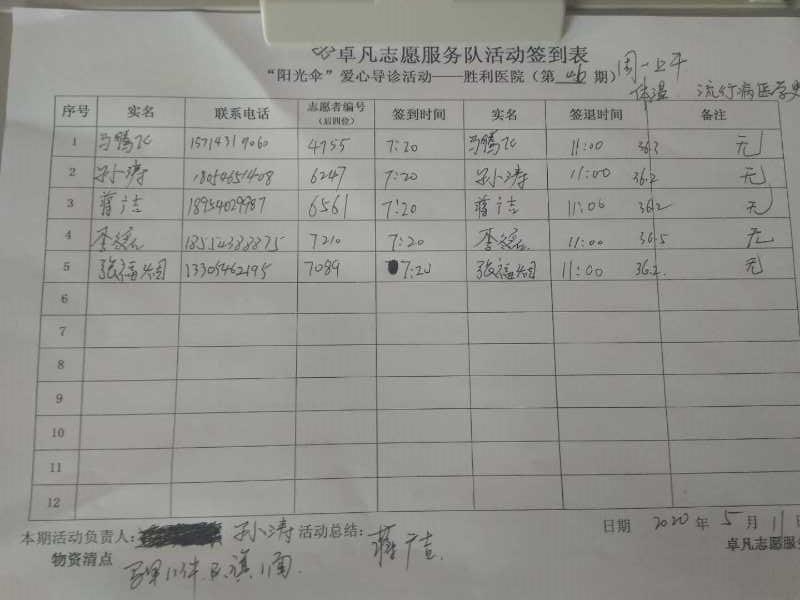 卓凡志愿服务队活动签到表
“阳光伞”爱心导诊活动——胜利医院(第 期) 周一上午
体温 流行病医学史
序号 实名 联系电话 志愿者编号(后四位) 签到时间 实名 签退时间 备注
1 马腾飞 15714319060 4755 7:20 马腾飞 11:00 36.3 无
2 孙涛 18054651408 6247 7:20 孙涛 11:00 36.2 无
3 蒋广吉 18954029987 6561 7:20 蒋广吉 11:00 36.2 无
4 李 18554388875 7210 7:20 李 11:00 36.5 无
5 张福国 13305462195 7089 7:20 张福国 11:00 36.2 无
6
7
8
9
10
11
12
本期活动负责人: 孙涛 活动总结: 蒋广吉 日期 2020 年 5 月 11 日
物资清点 马甲11件 旗1面 卓凡志愿服